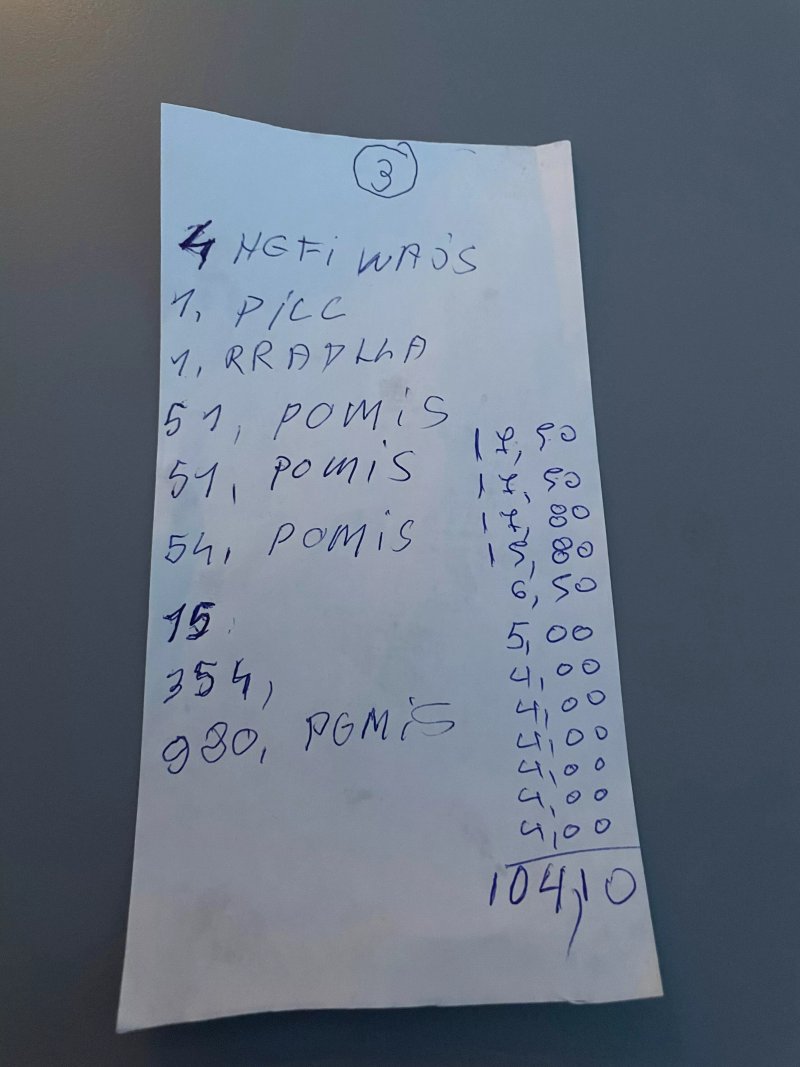 3
4 HEFI WAOS
1, PILC
1, RRADLLA
51, POMiS
51, POMiS
54, POMiS
15
354,
980, POMiS
17,50
17,50
17,80
15,80
6,50
5,00
4,00
4,00
4,00
4,00
4,00
4,00
104,10